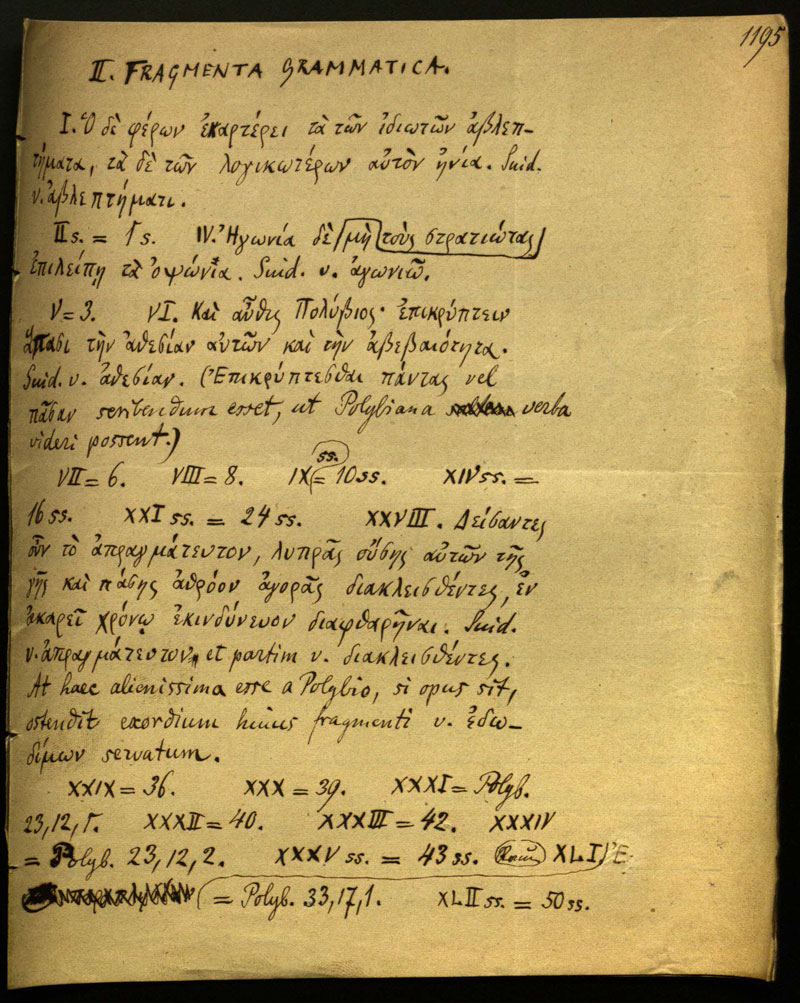 1195
II. FRAGMENTA GRAMMATICA.
I. Ὁ δὲ φέρων ἐκαρτέρει τὰ τῶν ἰδιωτῶν ἀβλεπ-
τήματα, τὰ δὲ τῶν λογικωτέρων αὐτὸν ἠνία. Suid.
v. ἀβλεπτήματι.
II s. = 1 s. IV. Ἠγωνία δὲ μὴ τοὺς στρατιώτας
ἐπιλείπῃ τὰ ὀψώνια. Suid. v. ἀγωνιῶ.
V = 3. VI. Καὶ αὖθις Πολύβιος· ἐπικρύπτειν
ἅπασι τὴν ἀθεσίαν αὐτῶν καὶ τὴν ἀβεβαιότητα.
Suid. v. ἀθεσίαν. (Ἐπικρύπτεσθαι πάντας vel
πᾶσαν scribendum esset, ut Polybiana verba
videri possent.)
VII = 6. VIII = 8. IX ss. = 10 ss. XIV ss. =
16 ss. XXI ss. = 24 ss. XXVIII. Δείσαντες
οὖν τὸ ἀπραγμάτευτον, λυπρᾶς οὔσης αὐτῶν τῆς
γῆς καὶ πάσης ἀθρόον ἀγορᾶς διακλεισθέντες, ἐν
ἀκαρεῖ χρόνῳ ἐκινδύνευον διαφθαρῆναι. Suid.
v. ἀπραγμάτευτον, et partim v. διακλεισθέντες.
At haec alienissima esse a Polybio, si opus sit,
ostendit exordium huius fragmenti v. ἐδω-
δίμων servatum.
XXIX = 36. XXX = 39. XXXI = Polyb.
23,12,1. XXXII = 40. XXXIII = 42. XXXIV
= Polyb. 23,12,2. XXXV ss. = 43 ss. XLI
= Polyb. 33,17,1. XLII ss. = 50 ss.